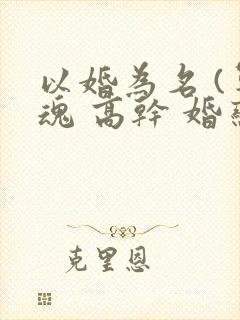 以婚為名(
魂 高幹 婚
克里恩